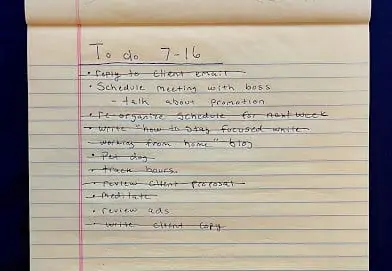 To do 7-16
• reply to client email
• Schedule meeting with boss
- talk about promotion
• re-organize schedule for next week
• write "how to stay focused while
working from home" blog
• Pet dog
• track hours
• review client proposal
• meditate
• review ads
• write client copy